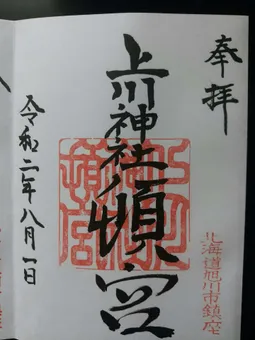 奉拝
上川神社頓宮
北海道旭川市鎮座
令和二年八月一日